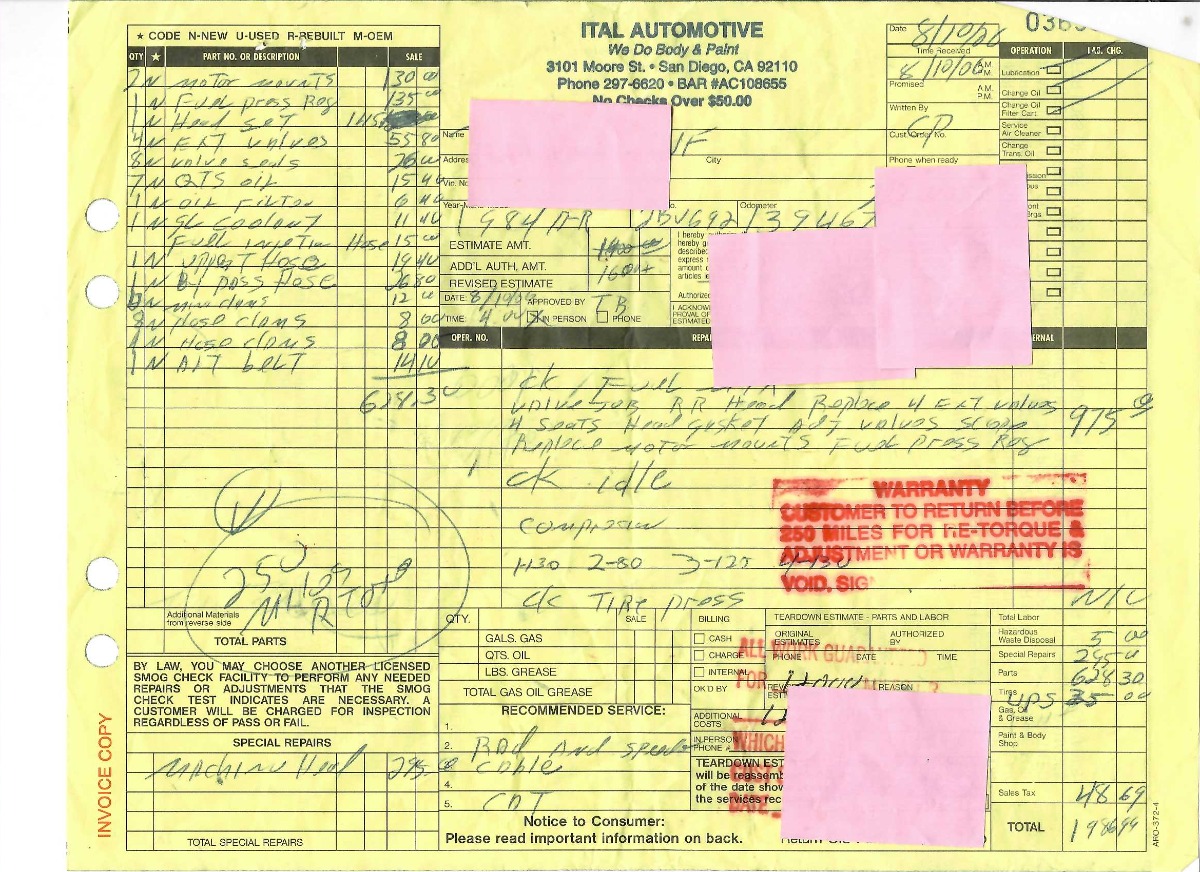 ★ CODE N-NEW U-USED R-REBUILT M-OEM
QTY ★ PART NO. OR DESCRIPTION SALE
2 N motor mounts 130 00
1 N Fuel press Reg 135 00
1 N Head set 145
4 N EXT valves 55 80
8 N valve seals 26 00
7 N QTS oil 15 40
1 N OIL Filter 6 40
1 N GL coolant 11 40
Fuel injection Hose 15 00
1 N upper Hose 19 40
1 N By pass Hose 26 80
N mini clams 12 00
N Hose clams 8 00
N Hose clams 8 00
1 N ALT belt 14 10
628.30
250
Additional Materials
from reverse side
TOTAL PARTS
BY LAW, YOU MAY CHOOSE ANOTHER LICENSED
SMOG CHECK FACILITY TO PERFORM ANY NEEDED
REPAIRS OR ADJUSTMENTS THAT THE SMOG
CHECK TEST INDICATES ARE NECESSARY. A
CUSTOMER WILL BE CHARGED FOR INSPECTION
REGARDLESS OF PASS OR FAIL.
SPECIAL REPAIRS
Machine Head 295.00
TOTAL SPECIAL REPAIRS
INVOICE COPY
ITAL AUTOMOTIVE
We Do Body & Paint
3101 Moore St. • San Diego, CA 92110
Phone 297-6620 • BAR #AC108655
No Checks Over $50.00
Name
Address
City
Vic. No.
Year-
Odometer
1984 A-R 139467
ESTIMATE AMT.
ADD'L AUTH, AMT. 1600
REVISED ESTIMATE
DATE: 8/10/06 APPROVED BY
TIME: 4 00 IN PERSON PHONE
I hereby
Authorized
Date 8/10/06
Time Received A.M. P.M.
8/10/06
Promised A.M. P.M.
Written By
Cust. Order No.
Phone when ready
OPERATION
Lubrication
Change Oil
Change Oil
Filter Cart.
Service
Air Cleaner
Change
Trans. Oil
OPER. NO.
ck Fuel
valve job RR Head Replace 4 EXT valves 975 00
4 seats Head gasket Adj valves scope
Replace motor mounts Fuel press Reg
ck idle
compression
1-130 2-80 3-125 4-130
ck TIRE press N/C
WARRANTY
CUSTOMER TO RETURN BEFORE
250 MILES FOR RE-TORQUE &
ADJUSTMENT OR WARRANTY IS
VOID. SIG
QTY. SALE
GALS. GAS
QTS. OIL
LBS. GREASE
TOTAL GAS OIL GREASE
BILLING
CASH
CHARGE
INTERNAL
OK'D BY
ADDITIONAL
COSTS
IN PERSON
PHONE
TEARDOWN ESTIMATE - PARTS AND LABOR
ORIGINAL
ESTIMATES
AUTHORIZED
BY
PHONE DATE TIME
REASON
ALL WORK GUARANTEED
FOR
WHICH
DATE
TEARDOWN EST
will be reassemb
of the date show
the services rec
RECOMMENDED SERVICE:
1.
2. Rod And speedo
3. cable
4.
5.
Notice to Consumer:
Please read important information on back.
Total Labor
Hazardous
Waste Disposal 5 00
Special Repairs 295 00
Parts 628 30
Tires UPS 35 00
Gas, Oil
& Grease
Paint & Body
Shop
Sales Tax 48 69
TOTAL 1986 99
ARO-372-4